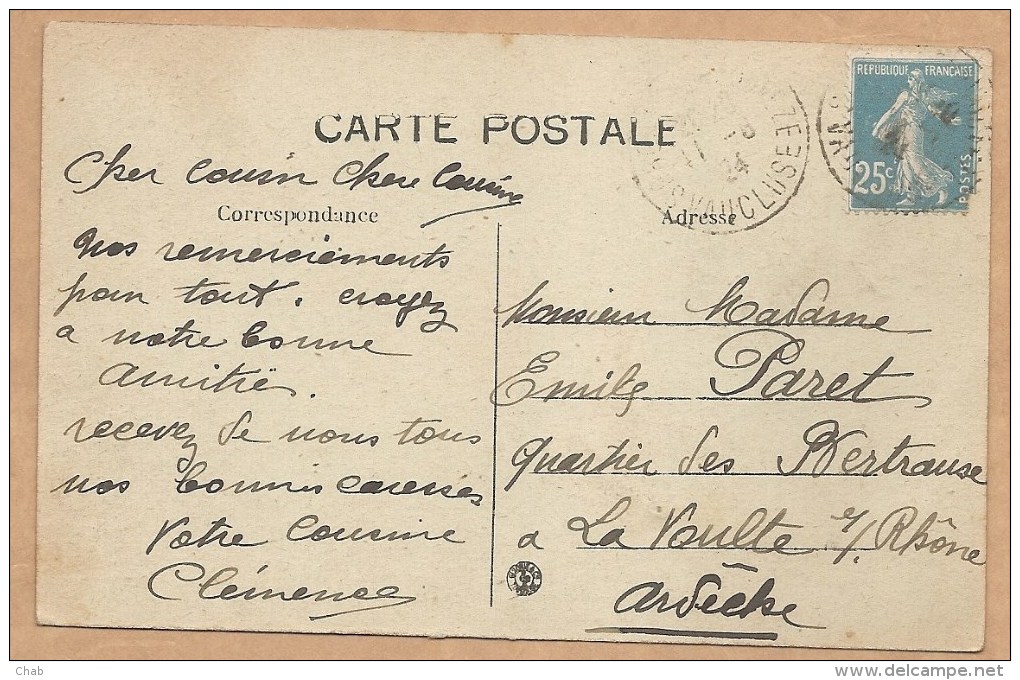 CARTE POSTALE
REPUBLIQUE FRANÇAISE
25c
POSTES
VAUCLUSE
24
Cher Cousin Chere Cousine
Correspondance
Nos remerciements
pour tout. croyez
a notre bonne
Amitié.
recevez de nous tous
nos bonnes caresses
Votre Cousine
Clémence
Adresse
Monsieur Madame
Emile Paret
quartier des
a La Voulte s/ Rhône
Ardèche
Chab
www.delcampe.net